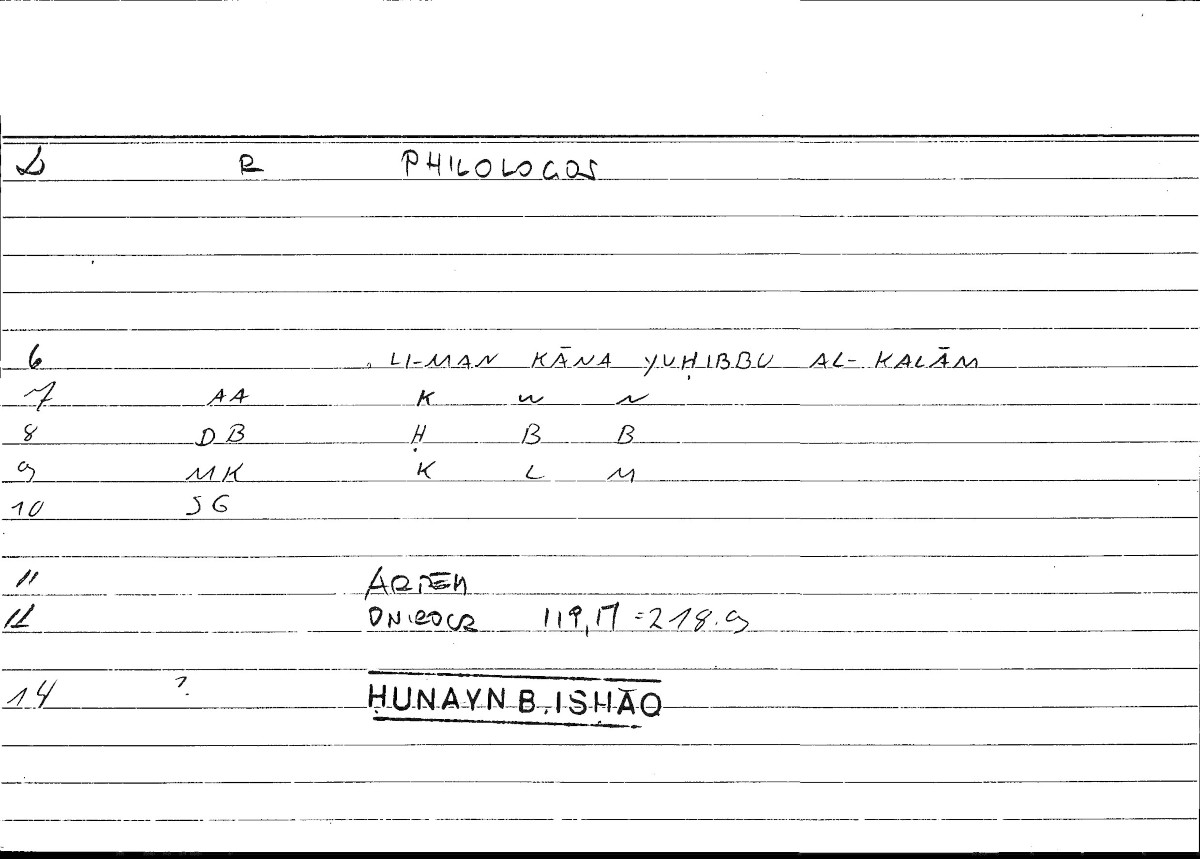 D R PHILOLOGOS
6 LI-MAN KĀNA YUḤIBBU AL-KALĀM
7 AA K W N
8 DB Ḥ B B
9 MK K L M
10 SG
11 ARTEM
12 ONIROCR 119,17=218.9
14 ?. ḤUNAYN B. ISḤĀQ